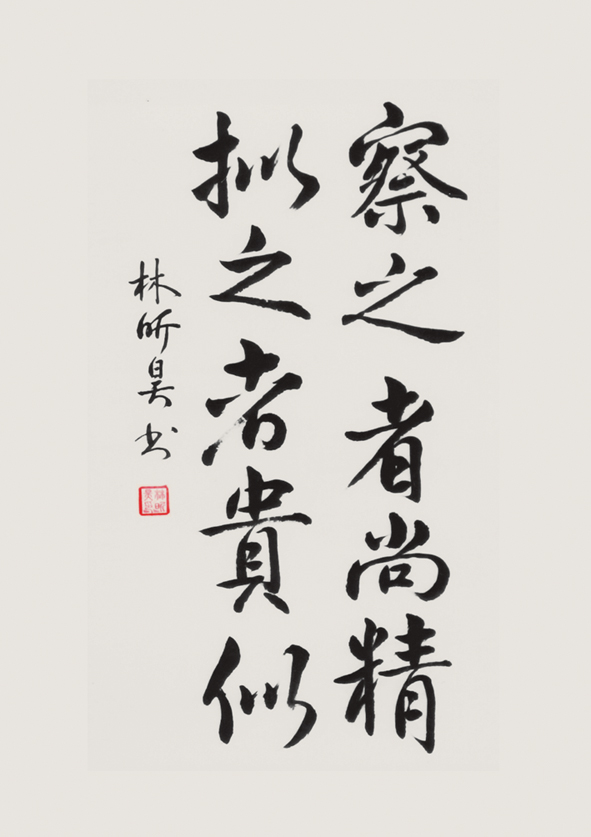 察之者尚精
拟之者貴似
林昕昊书